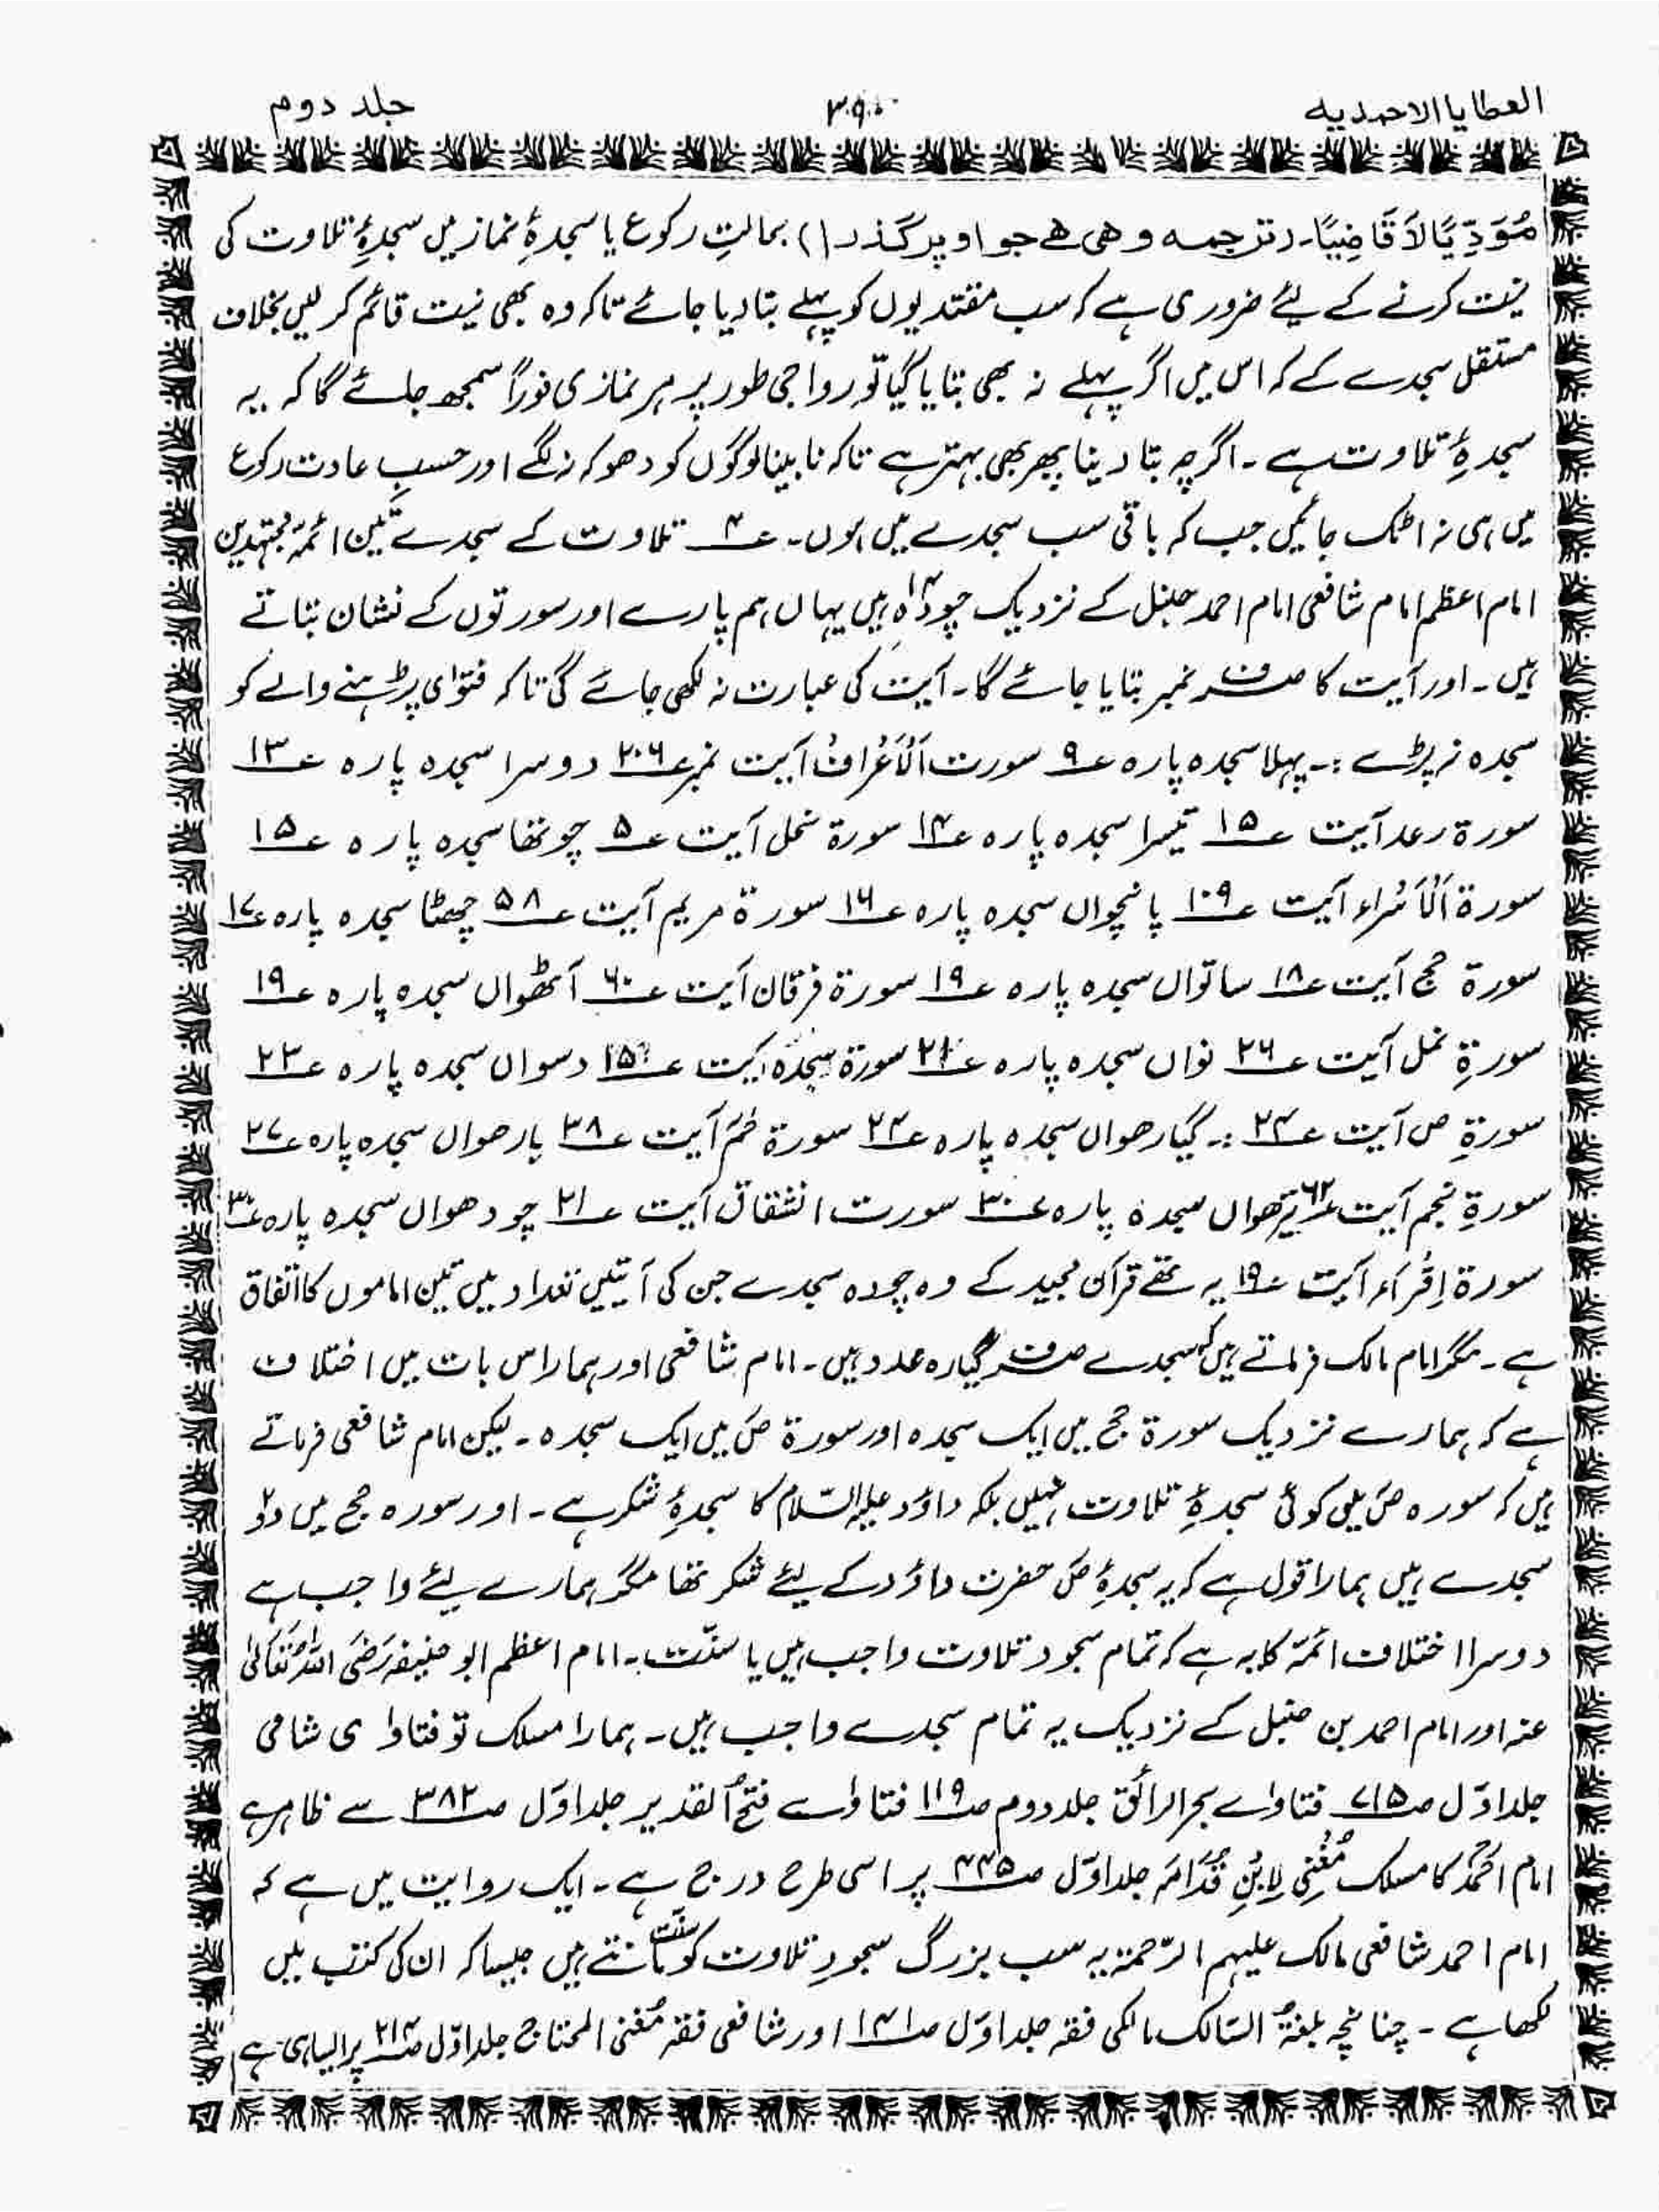 العطایا الاحمدیہ ۳۹۰ جلد دوم
مُؤَدِّیًا لاَ قَاضِیًا۔ (ترجمہ وہی ہے جو اوپر گذرا) بحالتِ رکوع یا سجدۂِ نماز میں سجدۂِ تلاوت کی
نیت کرنے کے لیئے ضروری ہے کہ سب مقتدیوں کو پہلے بتا دیا جائے تاکہ وہ بھی نیت قائم کر لیں بخلاف
مستقل سجدے کے کہ اس میں اگر پہلے نہ بھی بتایا گیا تو رواجی طور پر ہر نمازی فوراً سمجھ جائے گا کہ یہ
سجدۂِ تلاوت ہے۔ اگرچہ بتا دینا پھر بھی بہتر ہے تاکہ نابینا لوگوں کو دھوکہ نہ لگے اور حسبِ عادت رکوع
میں ہی نہ اٹک جائیں جب کہ باقی سب سجدے میں ہوں۔ ؏۴ تلاوت کے سجدے تین ائمّہ مجتہدین
امام اعظم امام شافعی امام احمد حنبل کے نزدیک چودہ۱۴ ہیں یہاں ہم پارے اور سورتوں کے نشان بتاتے
ہیں۔ اور آیت کا صرف نمبر بتایا جائے گا۔ آیت کی عبارت نہ لکھی جائے گی تاکہ فتوٰی پڑھنے والے کو
سجدہ نہ پڑے :۔ پہلا سجدہ پارہ ؏۹ سورت اَلْاَعْرَافُ آیت نمبر ؏۲۰۶ دوسرا سجدہ پارہ ؏۱۳
سورۃ رعد آیت ؏۱۵ تیسرا سجدہ پارہ ؏۱۴ سورۃ نحل آیت ؏۵ چوتھا سجدہ پارہ ؏۱۵
سورۃ اَلْاَسْراء آیت ؏۱۰۹ پانچواں سجدہ پارہ ؏۱۶ سورۃ مریم آیت ؏۵۸ چھٹا سجدہ پارہ ؏۱۷
سورۃ حج آیت ؏۱۸ ساتواں سجدہ پارہ ؏۱۹ سورۃ فرقان آیت ؏۶۰ آٹھواں سجدہ پارہ ؏۱۹
سورۃِ نمل آیت ؏۲۶ نواں سجدہ پارہ ؏۲۱ سورۃ سجدہ آیت ؏۱۵ دسواں سجدہ پارہ ؏۲۳
سورۃِ ص آیت ؏۲۴ :۔ گیارھواں سجدہ پارہ ؏۲۴ سورۃ حٰمٓ آیت ؏۳۸ بارھواں سجدہ پارہ ؏۲۷
سورۃِ نجم آیت ؏۶۲ تیرھواں سجدہ پارہ ؏۳۰ سورت انشقاق آیت ؏۲۱ چودھواں سجدہ پارہ ؏۳۰
سورۃ اِقْرَاء آیت ؏۱۹ یہ تھے قرآن مجید کے وہ چودہ سجدے جن کی آیتیں تعداد میں تین اماموں کا اتفاق
ہے۔ مگر امام مالک فرماتے ہیں کہ سجدے صرف گیارہ عدد ہیں۔ امام شافعی اور ہمارا اس بات میں اختلاف
ہے کہ ہمارے نزدیک سورۃ حج میں ایک سجدہ اور سورۃ صٓ میں ایک سجدہ۔ لیکن امام شافعی فرماتے
ہیں کہ سورہ صٓ میں کوئی سجدۂِ تلاوت نہیں بلکہ داؤد علیہ السّلام کا سجدۂِ شکر ہے۔ اور سورہ حج میں دو۲
سجدے ہیں ہمارا قول ہے کہ یہ سجدۂِ صٓ حضرت داؤد کے لیئے شکر تھا مگر ہمارے لیئے واجب ہے
دوسرا اختلاف ائمّہ کا یہ ہے کہ تمام سجودِ تلاوت واجب ہیں یا سنّت۔ امام اعظم ابو حنیفہ رَضِیَ اللّٰہُ تَعَالٰی
عنہ اور امام احمد بن حنبل کے نزدیک یہ تمام سجدے واجب ہیں۔ ہمارا مسلک تو فتاوٰی شامی
جلد اوّل صـ۷۱۵ فتاواے بحر الرائق جلد دوم صـ۱۱۹ فتاواے فتحُ القدیر جلد اوّل صـ۳۸۲ سے ظاہر ہے
امام احمدؒ کا مسلک مُغْنِی لِابْنِ قُدَامَہ جلد اوّل صـ۴۴۵ پر اسی طرح درج ہے۔ ایک روایت میں ہے کہ
امام احمد شافعی مالک علیہم الرّحمۃ یہ سب بزرگ سجودِ تلاوت کو سنّت مانتے ہیں جیسا کہ ان کی کتب میں
لکھا ہے۔ چنانچہ بلغۃُ السّالک مالکی فقہ جلد اوّل صـ۱۴۱ اور شافعی فقہ مُغنی المحتاج جلد اوّل صـ۲۱۴ پر ایسا ہی ہے